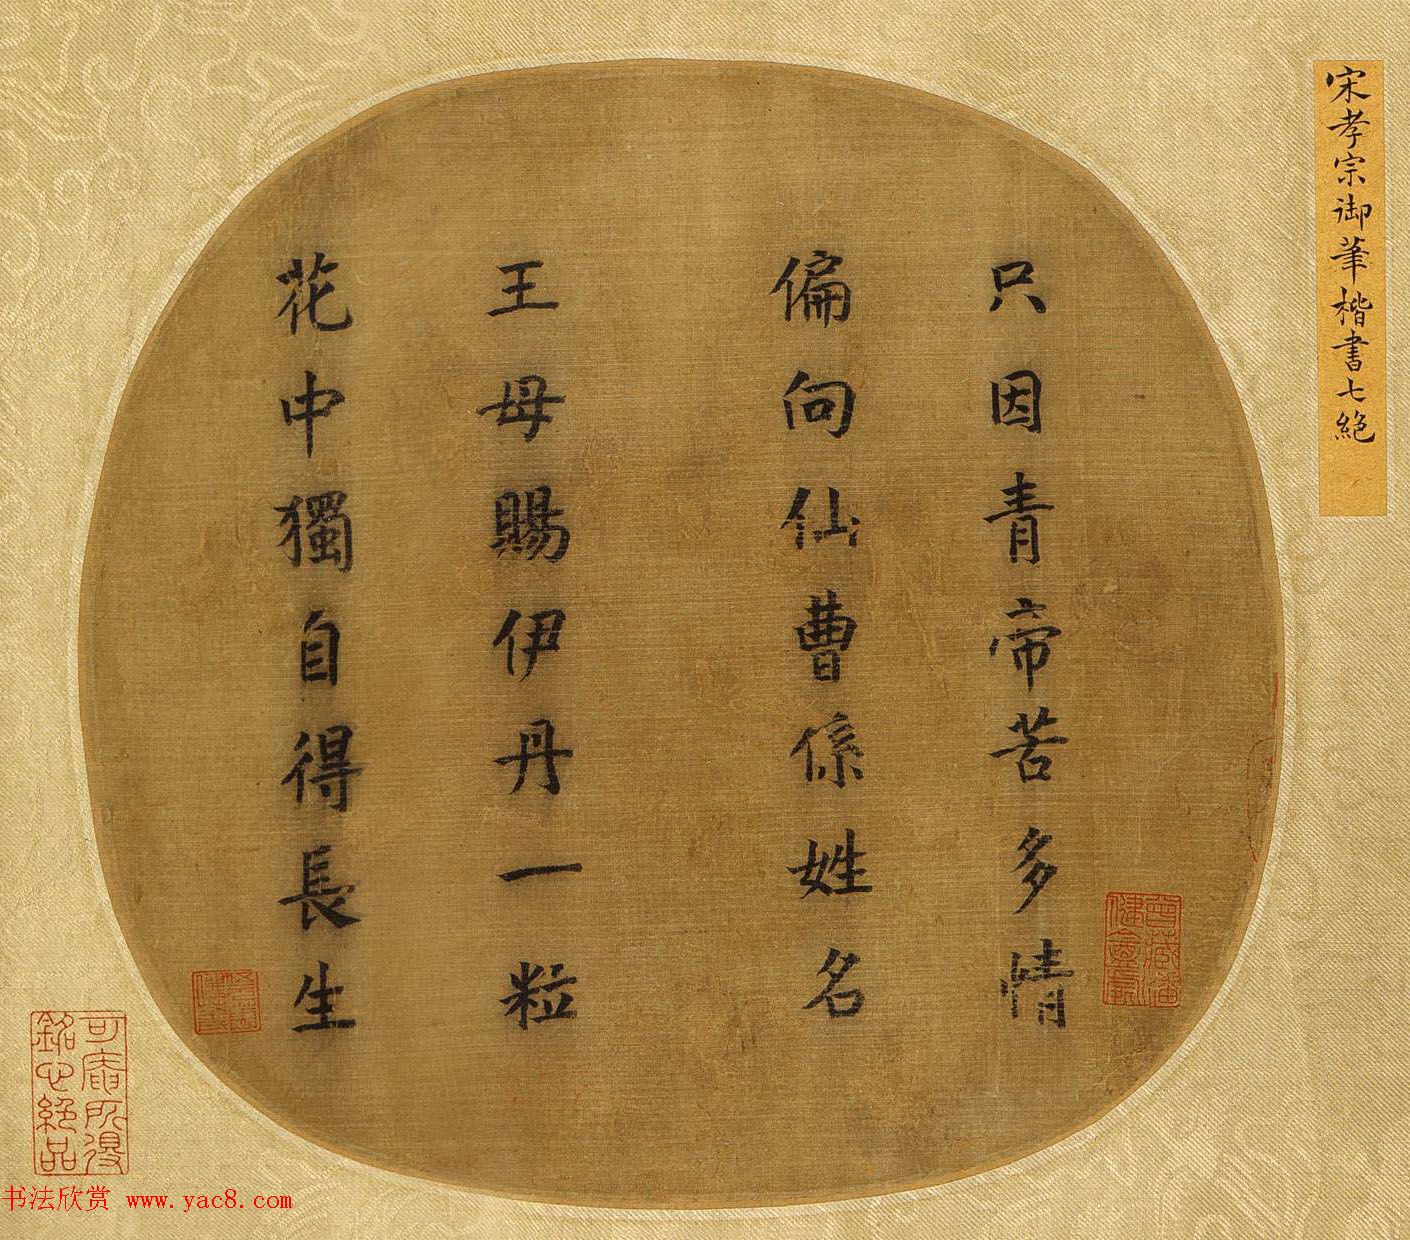 宋孝宗御筆楷書七絕
只因青帝苦多情
偏向仙曹係姓名
王母賜伊丹一粒
花中獨自得長生
可庵所得
銘心絕品
书法欣赏 www.yac8.com